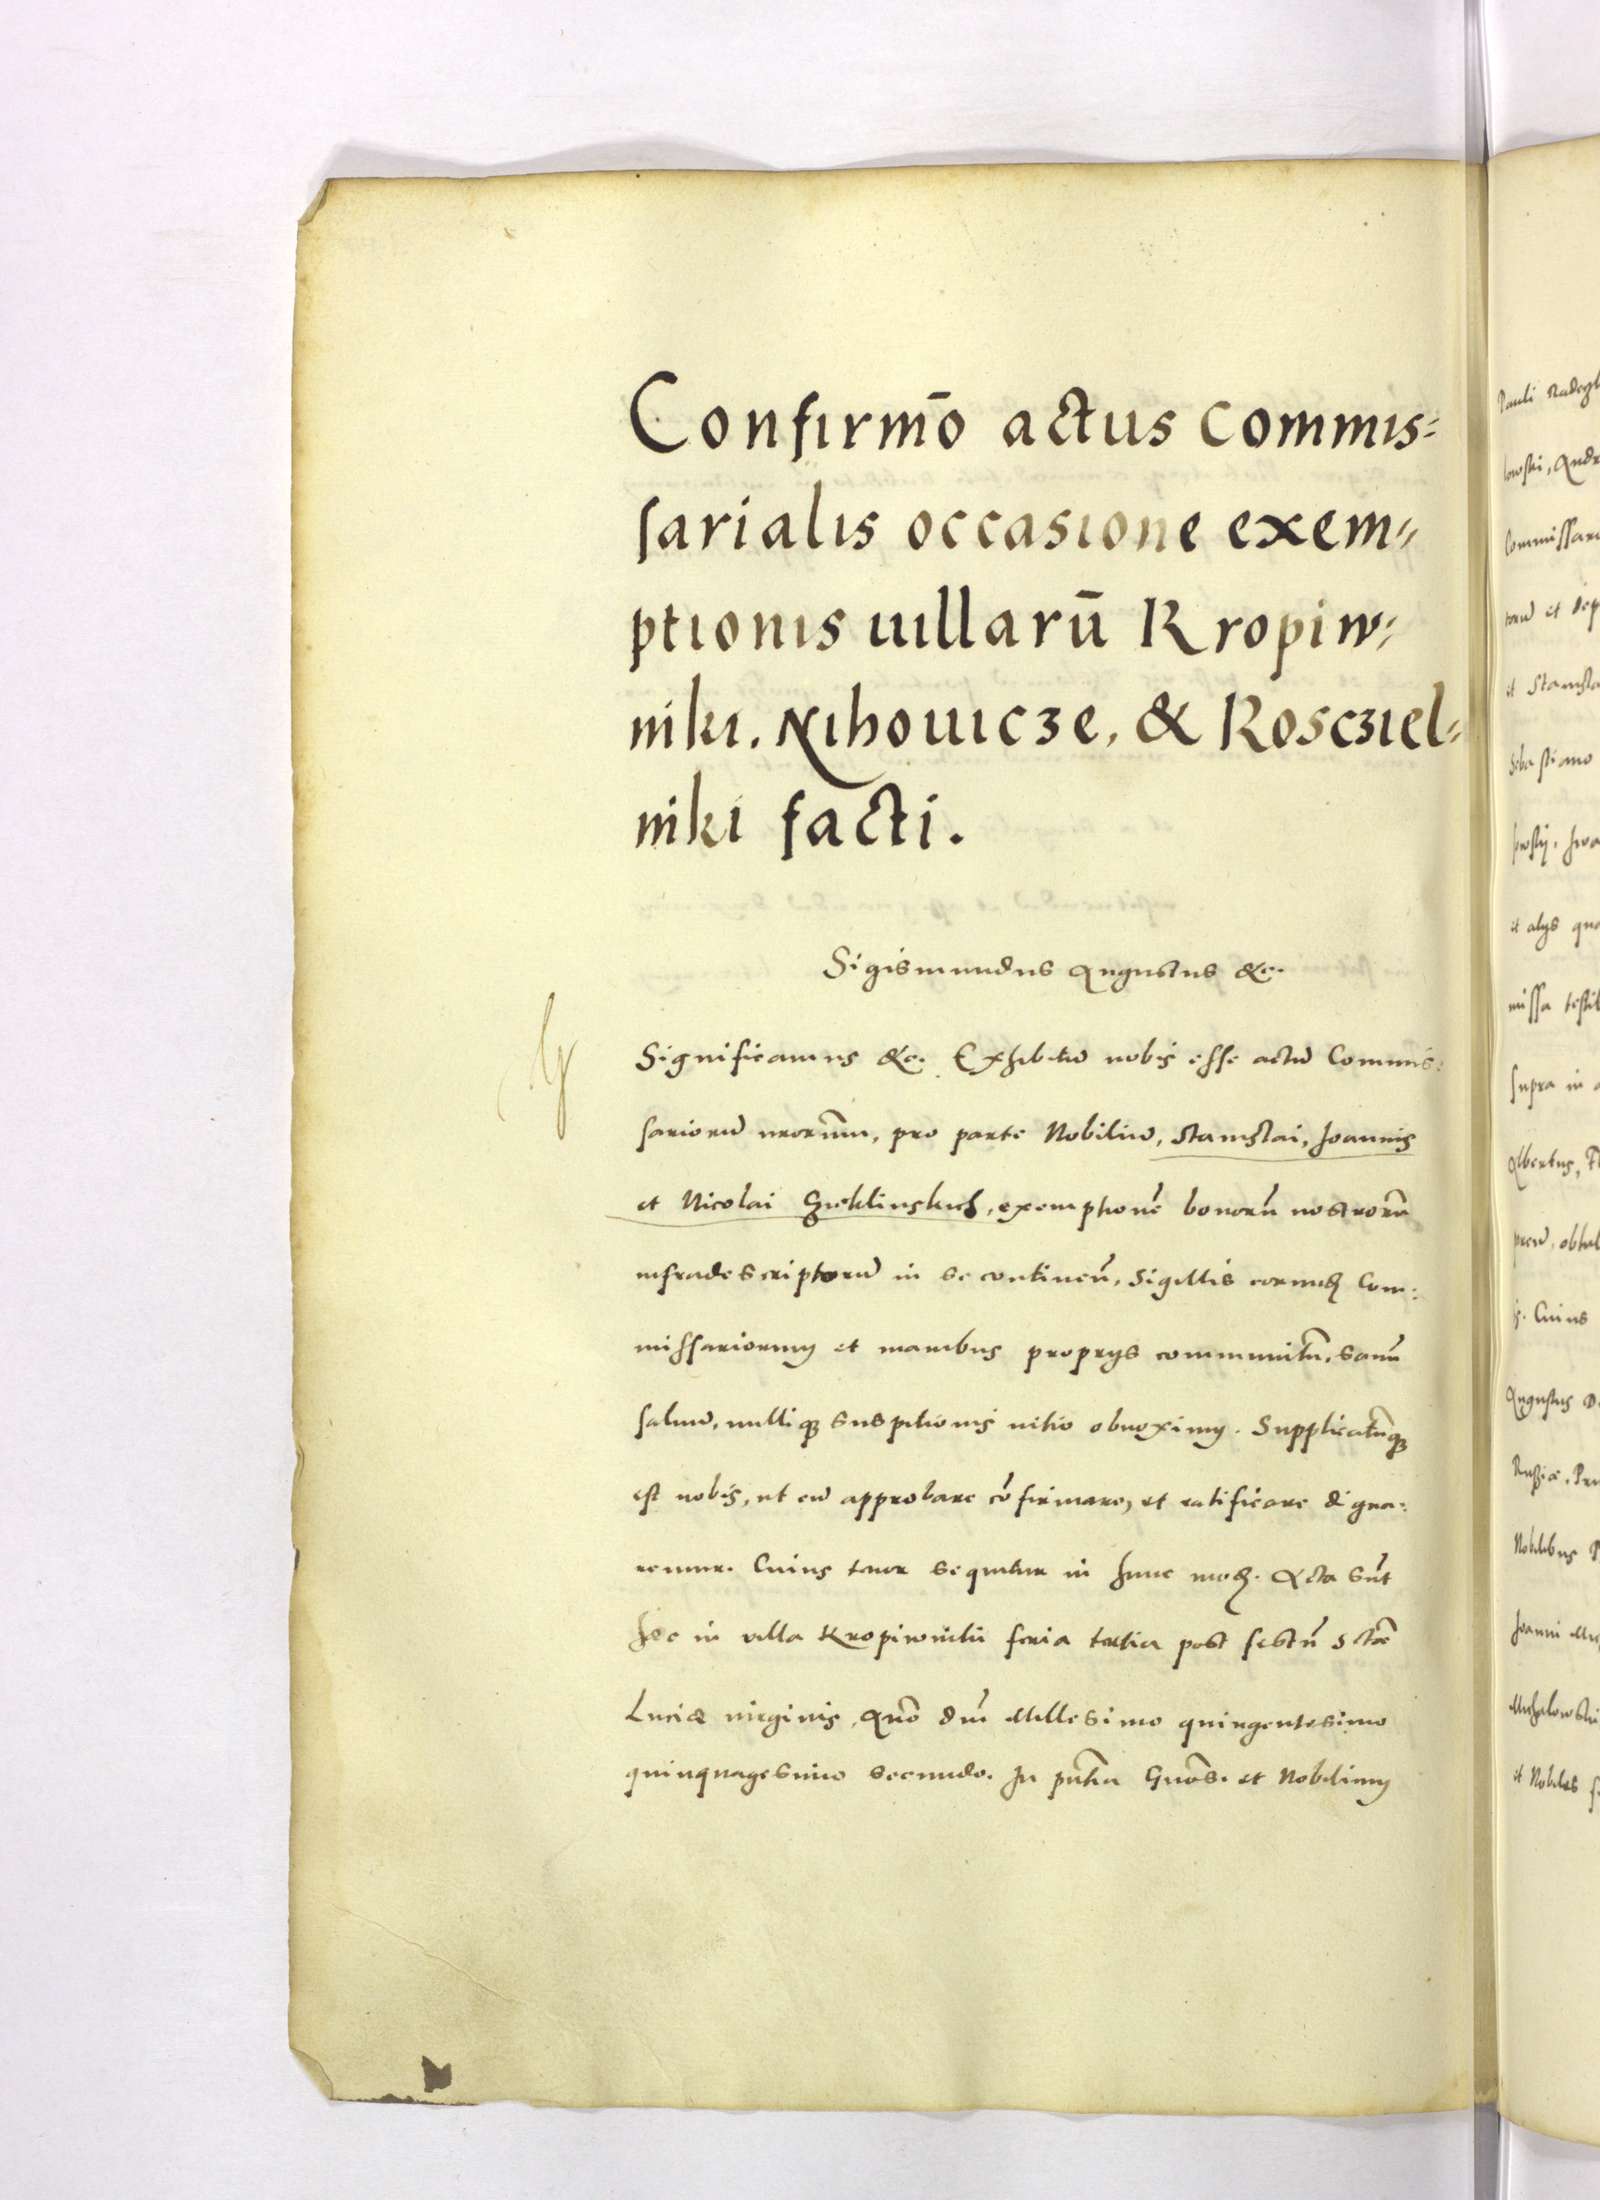 Confirmo̅ actus commis=
sarialis occasione exem=
ptionis uillaru̅ Kropiw=
niki. Nihouicze, & Kosczıel=
niki facti.
Sigismundus Augustus &c.
Significamus &c. Exhibitu̅ nobis esse actu̅ Commis=
sarioru̅ nr̅orum, pro parte Nobiliu̅, Stanislai, Joannis
et Nicolai Sieklinskich, exemptione̅ bonoru̅ nostroru̅
infradescriptoru̅ in se continen̅, Sigillis eorundem Com=
missariorum et manibus proprijs communitu̅, sanu̅
saluu̅, nulliq̅ suspitionis uitio obnoxium. Supplicatu̅q̅
est nobis, ut eu̅ approbare co̅firmare, et ratificare digna=
remur. Cuius tenor sequitur in hunc mod̅. Acta su̅t
hæc in villa Kropiwniki feria tertia post festu̅ S̅ctæ
Luciæ uirginis, An̅o Dn̅i Millesimo quingentesimo
quinquagesimo secundo. In pn̅tia Gn̅os. et Nobilium
Pauli
Commissari
et Stanisla
Sebastiano
et alijs
missa
supra in
Albertus,
Cuius
Augustus
Russiæ. Pru
Nobilibus
Joanni
et Nobiles